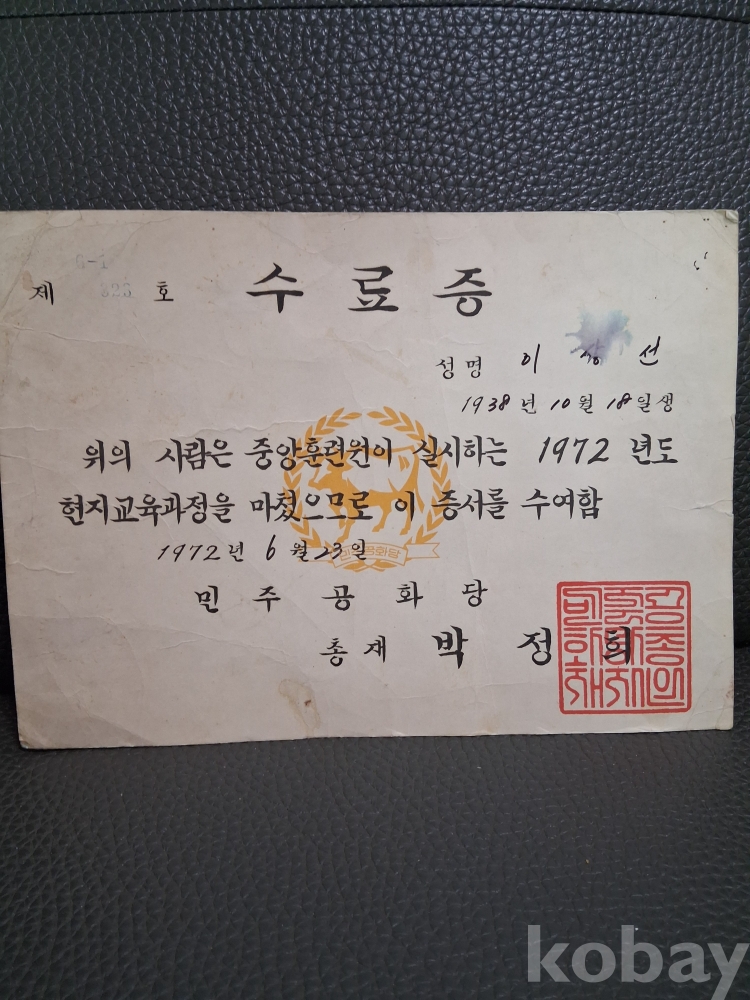 제 호 수료증
성명 이 상 선
1938년 10월 18일생
위의 사람은 중앙훈련원이 실시하는 1972 년도
현지교육과정을 마쳤으므로 이 증서를 수여함
1972년 6월 23일
민주공화당
민주공화당
총재 박정희
kobay